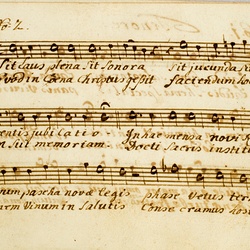 No 2.
Sit laus plena sit Sonora Sit jucunda sit
quod in Coena Christus gessit faciendum
mentis jubilatio. In hac mensa novi
in sui memoriam. Docti Sacris institu
num pascha novae legis phase vetus ter
nem Vinum in Salutis Consecramus hos